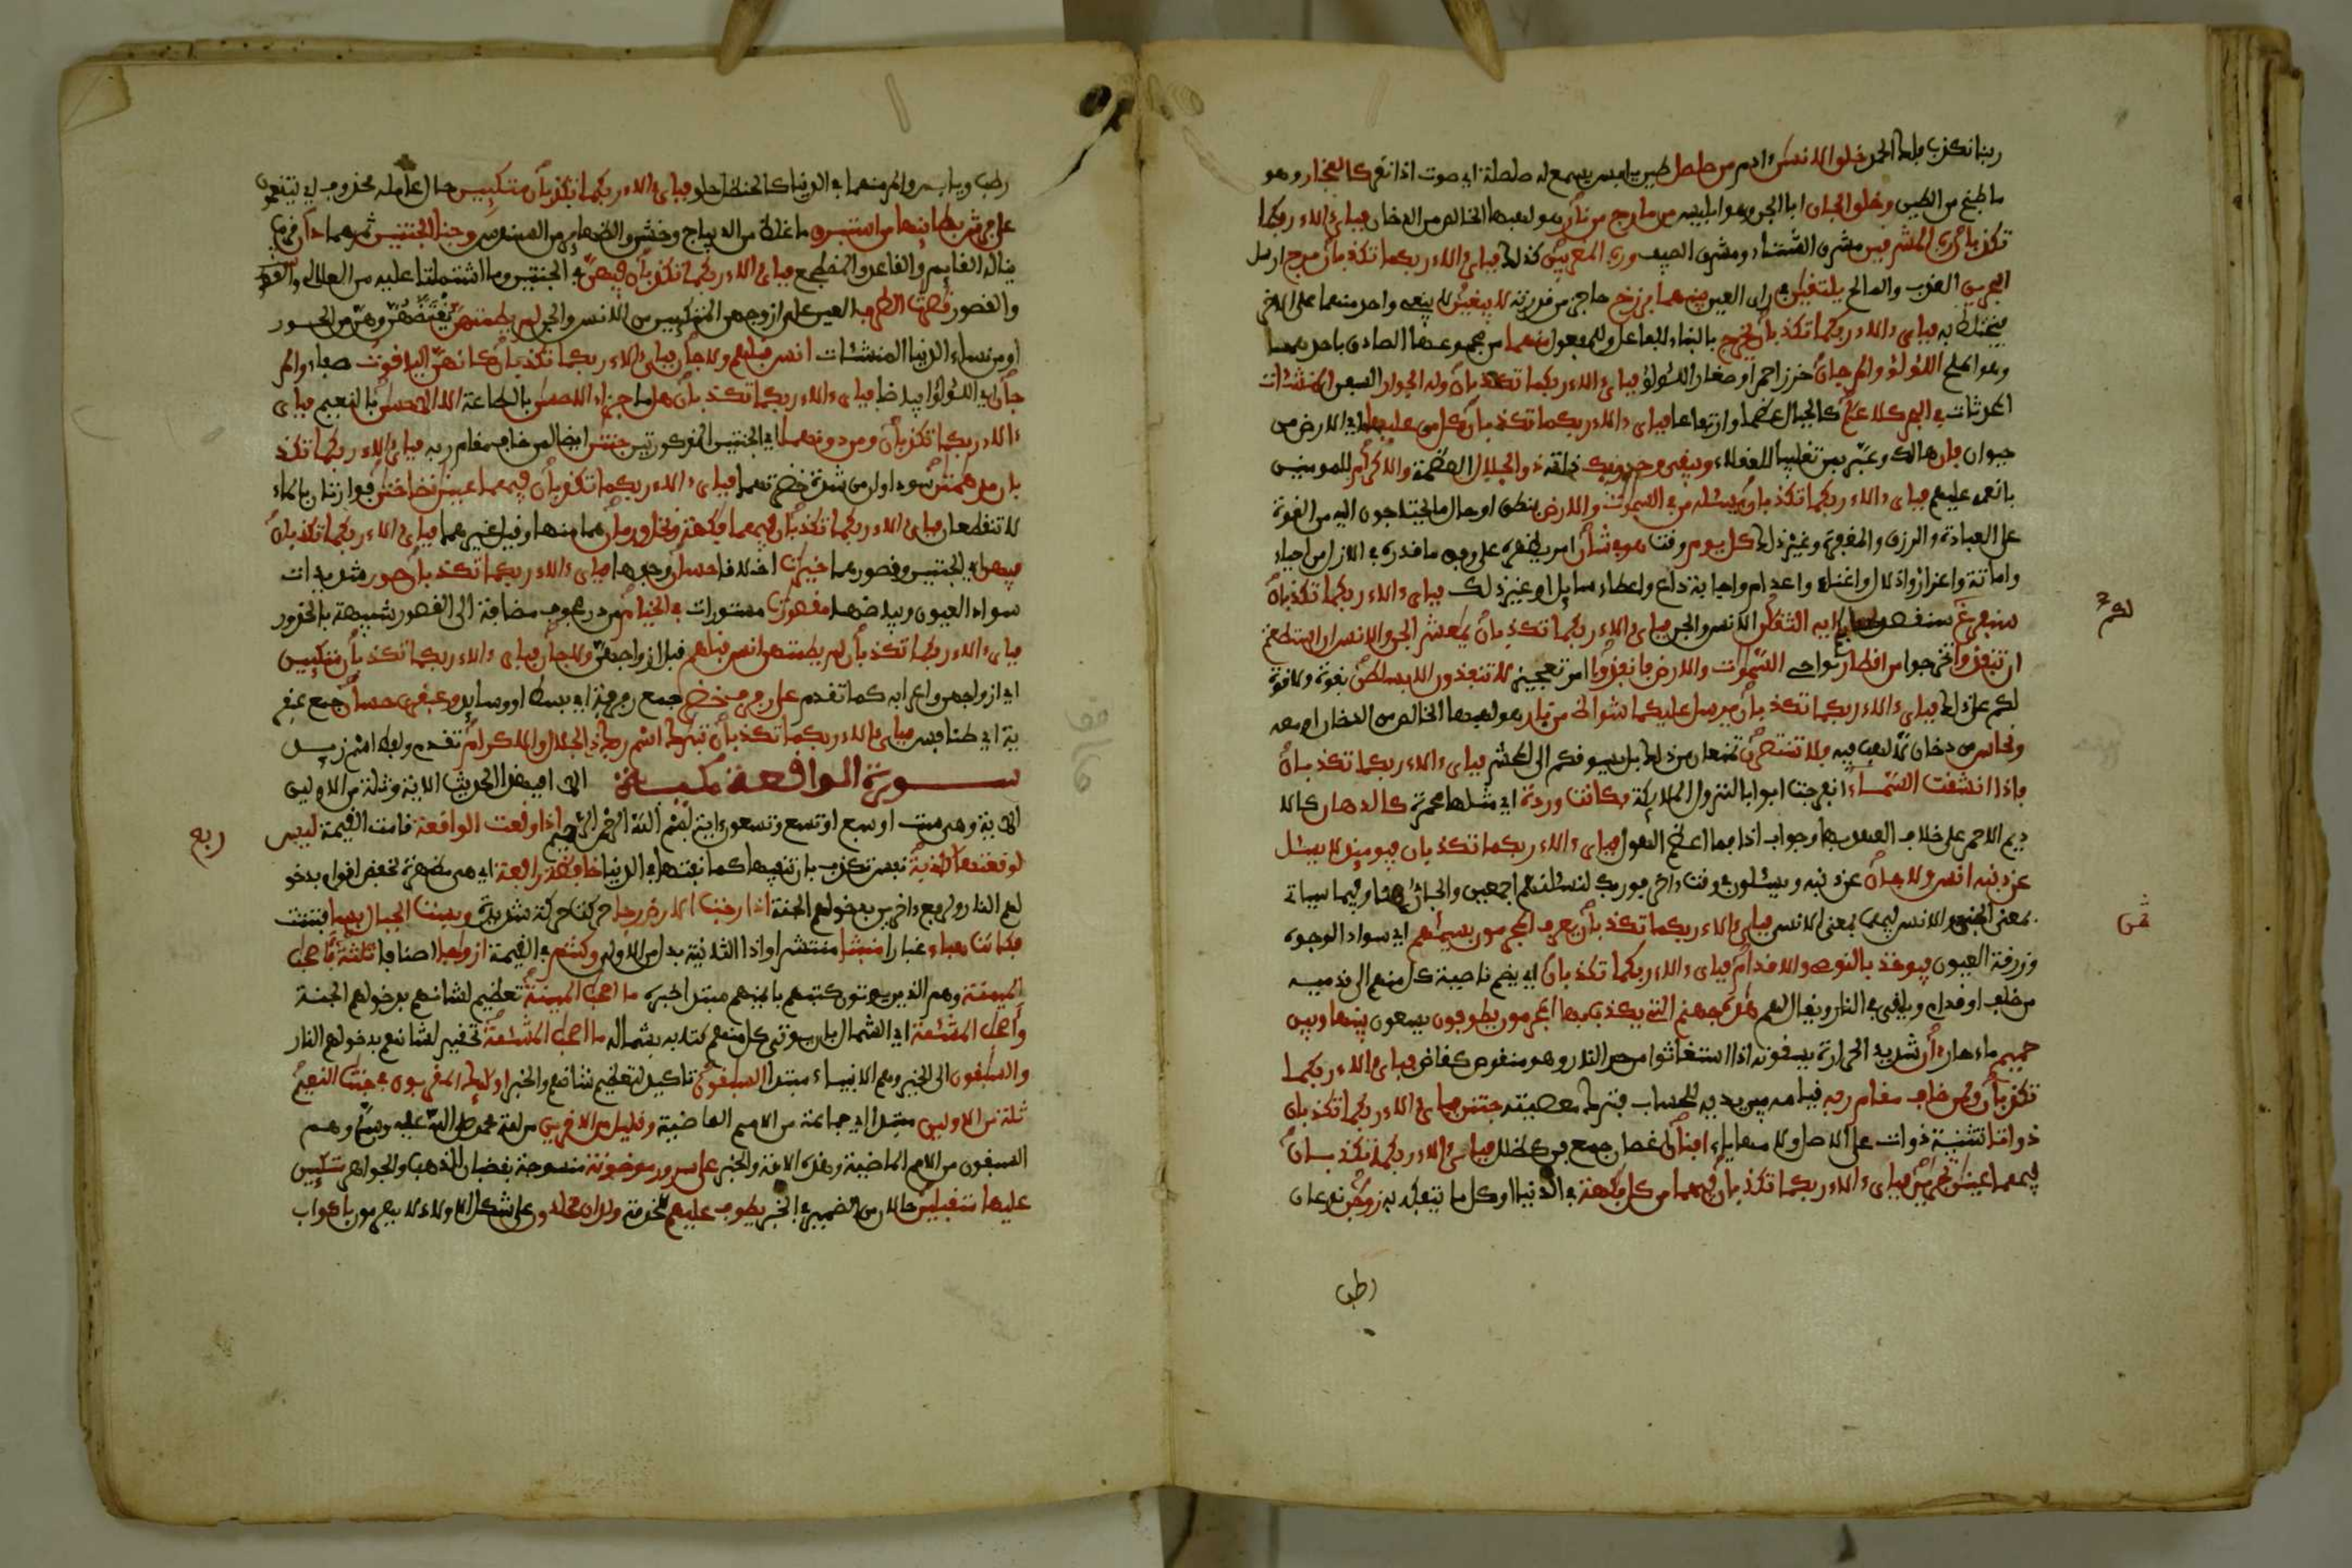 ربنا نكذب فلك الحمد خلق الانسن ءادم من صلصل طين يابس يسمع له صلصلة اي صوت اذا نقر كالفخار وهو
ما طبخ من الطين وخلق الجان ابا الجن وهو ابليس من مارج من نار هو لهبها الخالص من الدخان فباي ءالاء ربكما
تكذبان رب المشرقين مشرق الشتاء ومشرق الصيف ورب المغربين كذلك فباي ءالاء ربكما تكذبان مرج ارسل
البحرين العذب والمالح يلتقين في راي العين بينهما برزخ حاجز من قدرته لا يبغين لا يبغي واحد منهما على الاخر
فيختلط به فباي ءالاء ربكما تكذبان يخرج بالبناء للفاعل وللمفعول منهما من مجموعهما الصادق باحدهما
وهو الملح اللؤلؤ والمرجان خرز احمر او صغار اللؤلؤ فباي ءالاء ربكما تكذبان وله الجوار السفن المنشئات
المحدثات في البحر كالاعلم كالجبال عظما وارتفاعا فباي ءالاء ربكما تكذبان كل من عليها اي الارض من
حيوان فان هالك وعبر بمن تغليبا للعقلاء ويبقى وجه ربك ذاته ذو الجلل العظمة والاكرام للمومنين
بانعمه عليهم فباي ءالاء ربكما تكذبان يسئله من في السموت والارض بنطق او حال ما يحتاجون اليه من القوة
على العبادة والرزق والمغفرة وغير ذلك كل يوم وقت هو في شان امر يظهره على وفق ما قدره في الازل من احياء
واماتة واعزاز واذلال واغناء واعدام واجابة داع واعطاء سايل وغير ذلك فباي ءالاء ربكما تكذبان
سنفرغ سنقصد لحسابكم ايه الثقلن الانس والجن فباي ءالاء ربكما تكذبان يمعشر الجن والانس ان استطعتم
ان تنفذوا تخرجوا من اقطار نواحي السموت والارض فانفذوا امر تعجيز لا تنفذون الا بسلطن بقوة ولا قوة
لكم على ذلك فباي ءالاء ربكما تكذبان يرسل عليكما شواظ من نار هو لهبها الخالص من الدخان او معه
ونحاس من دخان لا لهب فيه فلا تنتصرن تمتنعان من ذلك بل يسوقكم الى المحشر فباي ءالاء ربكما تكذبان
فاذا انشقت السماء انفرجت ابوابا لنزول الملايكة فكانت وردة اي مثلها محمرة كالدهان كالا
ديم الاحمر على خلاف العهد بها وجواب اذا فما اعظم الهول فباي ءالاء ربكما تكذبان فيوميذ لا يسئل
عن ذنبه انس ولا جان عن ذنبه ويسئلون في وقت ءاخر فوربك لنسئلنهم اجمعين والجان هنا وفيما سياتي
بمعنى الجن والانس فيهما بمعنى الانسي فباي ءالاء ربكما تكذبان يعرف المجرمون بسيمهم اي سواد الوجوه
وزرقة العيون فيوخذ بالنوصي والاقدام فباي ءالاء ربكما تكذبان اي يضم ناصية كل منهم الى قدميه
من خلف او قدام ويلقى في النار ويقال لهم هذه جهنم التي يكذب بها المجرمون يطوفون يسعون بينها وبين
حميم ماء حار ءان شديد الحرارة يسقونه اذا استغاثوا من حر النار وهو منقوص كقاض فباي ءالاء ربكما
تكذبان ولمن خاف مقام ربه قيامه بين يديه للحساب فترك معصيته جنتن فباي ءالاء ربكما تكذبان
ذواتا تثنية ذوات على الاصل ولامها ياء افنان اغصان جمع فنن كطلل فباي ءالاء ربكما تكذبان
فيهما عينن تجرين فباي ءالاء ربكما تكذبان فيهما من كل فكهة في الدنيا او كل ما يتفكه به زوجن نوعان
رطب
لكم
ثمن
رطب ويابس والمر منهما في الدنيا كالحنظل حلو فباي ءالاء ربكما تكذبان متكيين حال عامله محذوف اي يتنعمون
على فرش بطاينها من استبرق ما غلظ من الديباج وخشن والظهاير من السندس وجنا الجنتين ثمرهما دان قريب
يناله القايم والقاعد والمضطجع فباي ءالاء ربكما تكذبان فيهن في الجنتين وما اشتملتا عليه من العلالي
والقصور قصرت الطرف العين على ازوجهن المتكيين من الانس والجن لم يطمثهن يفتضهن وهن من الحور
او من نساء الدنيا المنشئات انس قبلهم ولا جان فباي ءالاء ربكما تكذبان كانهن الياقوت صفاء والمر
جان اي اللؤلؤ بياضا فباي ءالاء ربكما تكذبان هل ما جزاء الاحسن بالطاعة الا الاحسن بالنعيم فباي
ءالاء ربكما تكذبان ومن دونهما اي الجنتين المذكورتين جنتن ايضا لمن خاف مقام ربه فباي ءالاء ربكما تكذ
بان مدهمتن سوداوان من شدة خضرتهما فباي ءالاء ربكما تكذبان فيهما عينن نضاختن فوارتان بالماء
لا تنقطعان فباي ءالاء ربكما تكذبان فيهما فكهة ونخل ورمان هما منها وقيل غيرهما فباي ءالاء ربكما تكذبان
فيهن اي الجنتين وقصورهما خيرت اخلاقا حسان وجوها فباي ءالاء ربكما تكذبان حور شديدات
سواد العيون وبياضها مقصورت مستورات في الخيام من در مجوف مضافة الى القصور شبيهة بالخدور
فباي ءالاء ربكما تكذبان لم يطمثهن انس قبلهم قبل ازواجهن ولا جان فباي ءالاء ربكما تكذبان متكيين
اي ازواجهن واعرابه كما تقدم على رفرف خضر جمع رفرفة اي بسط او وسايد وعبقري حسان جمع عبقر
ية اي طنافس فباي ءالاء ربكما تكذبان تبرك اسم ربك ذي الجلل والاكرام تقدم ولفظ اسم زيد
سورة الواقعة مكية الا افبهذا الحديث الاية وثلة من الاولين
الاية وهي ست او سبع او تسع وتسعون ءاية بسم الله الرحمن الرحيم اذا وقعت الواقعة قامت القيمة ليس
لوقعتها كاذبة نفس تكذب بان تنفيها كما نفتها في الدنيا خافضة رافعة اي هي مظهرة لخفض اقوام بدخو
لهم النار ولرفع ءاخرين بدخولهم الجنة اذا رجت الارض رجا حركت حركة شديدة وبست الجبال بسا فتتت
فكانت هباء غبارا منبثا منتشرا واذا الثانية بدل من الاولى وكنتم في القيمة ازوجا اصنافا ثلثة فاصحب
الميمنة وهم الذين يوتون كتبهم بايمنهم مبتدا خبره ما اصحب الميمنة تعظيم لشانهم بدخولهم الجنة
واصحب المشئمة اي الشمال بان يوتى كل منهم كتابه بشماله ما اصحب المشئمة تحقير لشانهم بدخولهم النار
والسبقون الى الخير وهم الانبياء مبتدا السبقون تاكيد لتعظيم شانهم والخبر اوليك المقربون في جنت النعيم
ثلة من الاولين مبتدا اي جماعة من الامم الماضية وقليل من الاخرين من امة محمد صلى الله عليه وسلم وهم
السبقون من الامم الماضية وهذه الامة والخبر على سرر موضونة منسوجة بقضبان الذهب والجواهر متكيين
عليها متقبلين حالان من الضمير في الخبر يطوف عليهم للخدمة ولدان مخلدون على شكل الاولاد لا يهرمون باكواب
ربع